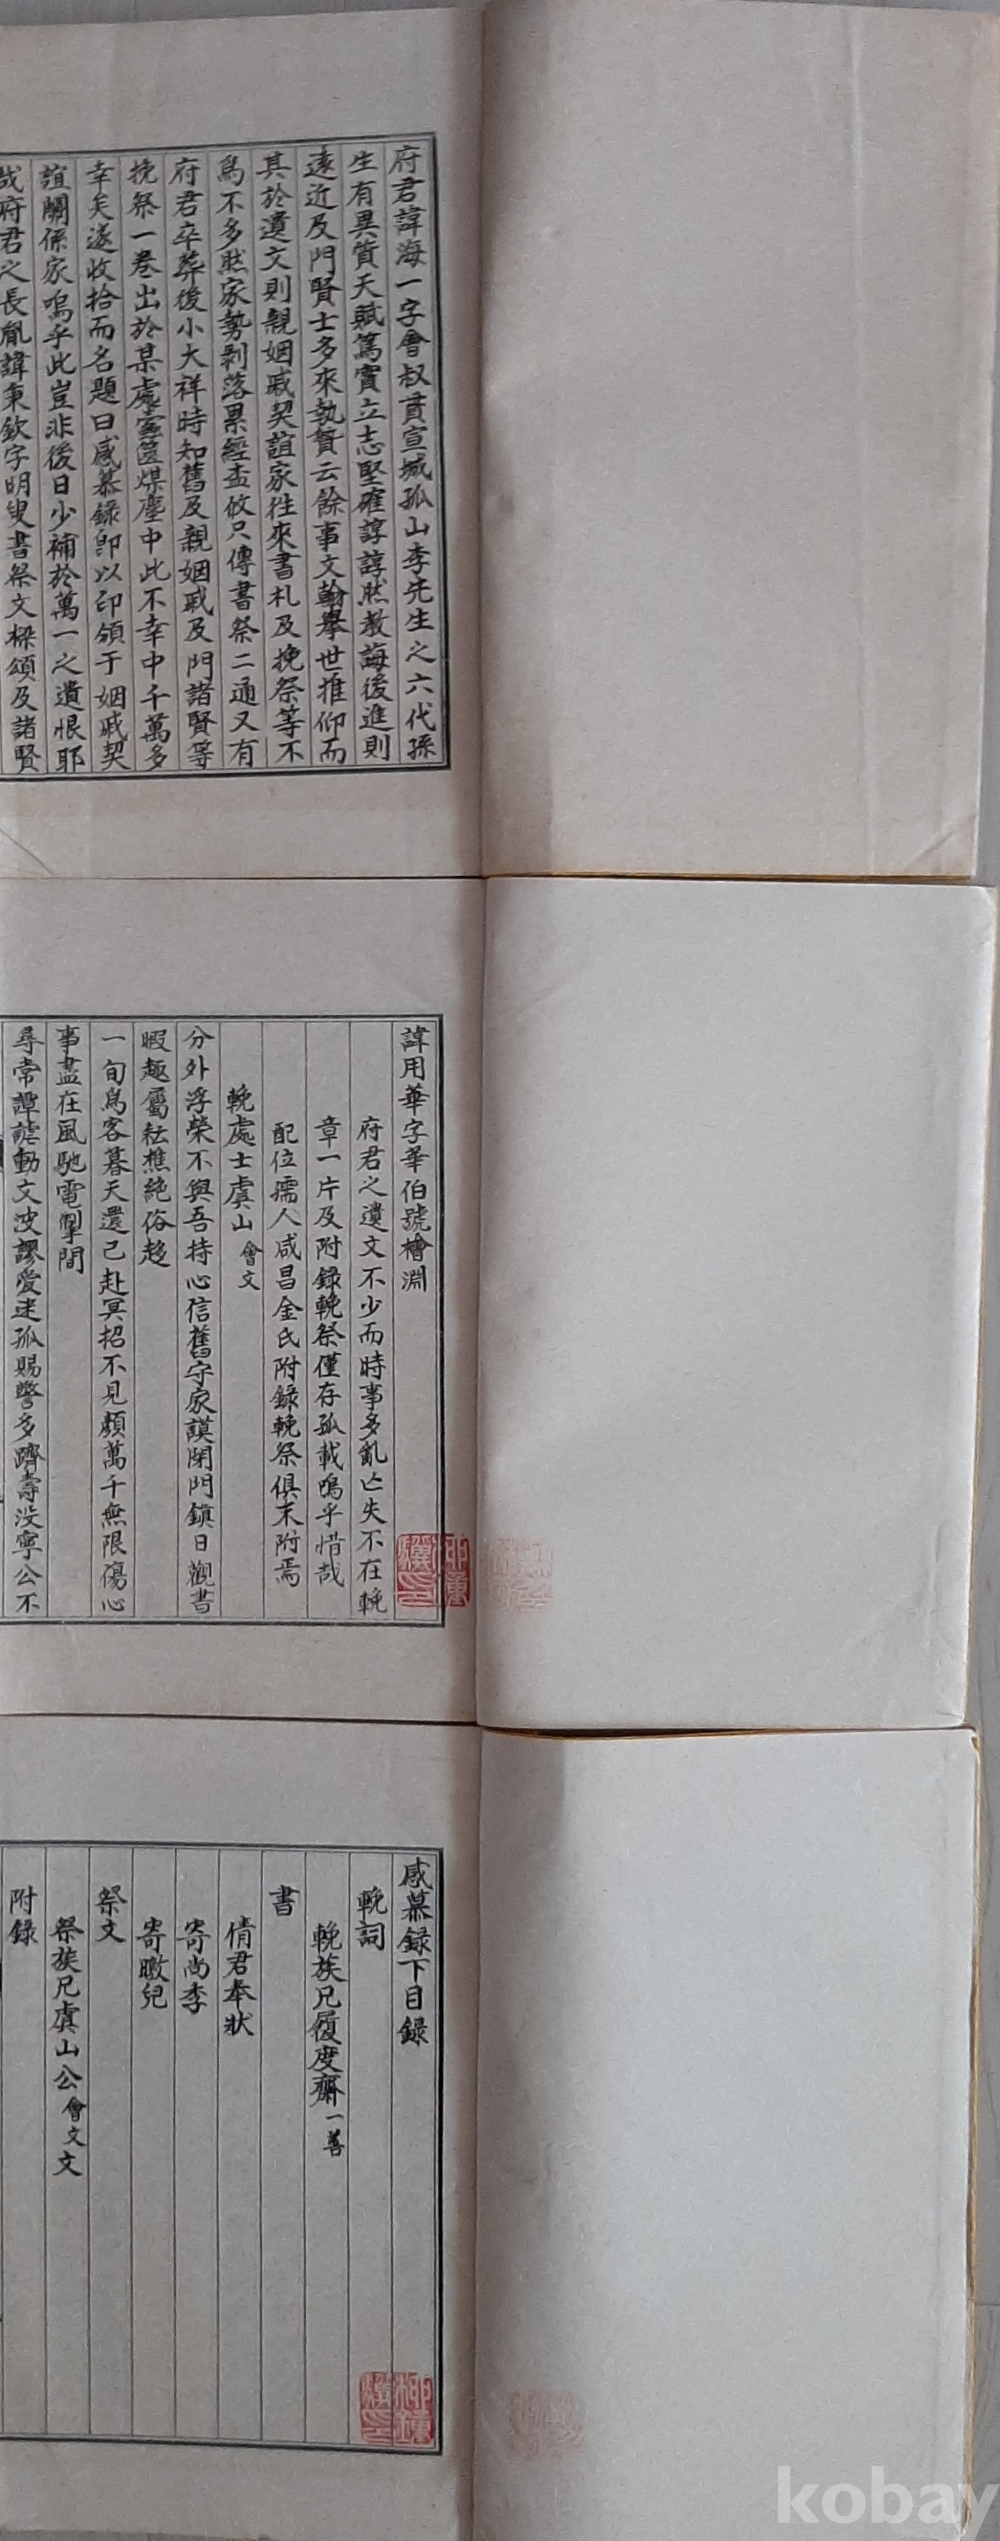 府君諱海一字會叔貫宣城孤山李先生之六代孫
生有異質天賦篤實立志堅確諄諄然教誨後進則
遠近及門賢士多來執贄云餘事文翰擧世推仰而
其於遺文則親姻戚契誼家徃來書札及挽祭等不
爲不多然家勢剥落累經盃攸只傳書祭二通又有
府君卒葬後小大祥時知舊及親姻戚及門諸賢等
挽祭一巻出於某處塵篋煤塵中此不幸中千萬多
幸矣遂收拾而名題曰感慕録卽以印領于姻戚契
誼關係家嗚乎此豈非後日少補於萬一之遺恨耶
哉府君之長胤諱秉欽字明叟書祭文樑頌及諸賢
諱用華字華伯號檜淵
府君之遺文不少而時事多亂亡失不在輓
章一片及附録輓祭僅存孤載嗚乎惜哉
配位孺人咸昌金氏附録輓祭俱末附焉
輓處士虞山 會文
分外浮榮不與吾持心信舊守家謨閑門鎮日觀書
暇趣屬耘樵絶俗趍
一旬爲客暮天還已赴冥招不見顔萬千無限傷心
事盡在風馳電掣間
尋常譚謔動文波謬愛迷孤賜警多躋壽没寧公不
感慕録下目録
輓詞
輓族兄履度齋 一善
書
倩君奉狀
寄尚季
寄暾兒
祭文
祭族兄虞山公 會文文
附録
kobay